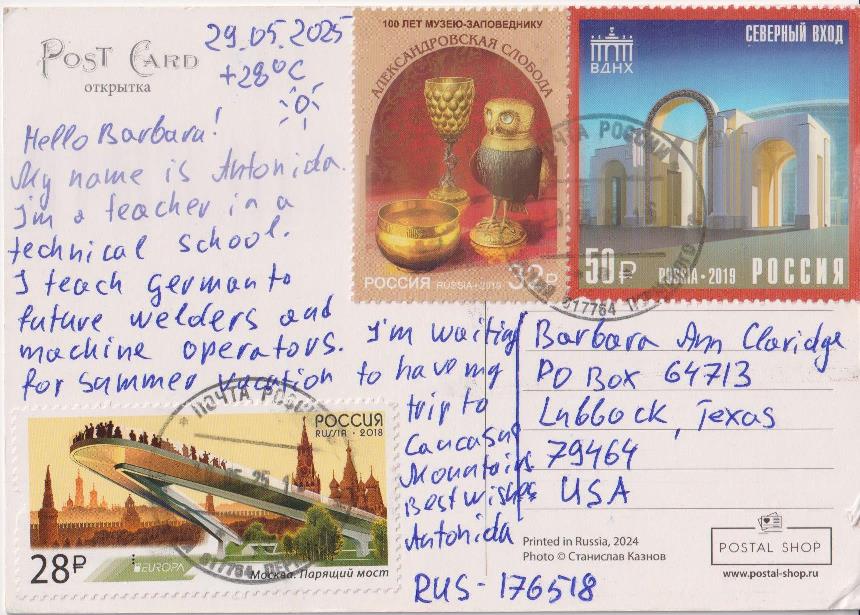 POST CARD
открытка
29.05.2025
+28°C
Hello Barbara!
My name is Antonida.
I'm a teacher in a
technical school.
I teach german to
future welders and
machine operators.
I'm waiting
for summer vacation to have my
trip to
Caucasus
Mountains
Best wishes
Antonida
RUS-176518
100 ЛЕТ МУЗЕЮ-ЗАПОВЕДНИКУ
АЛЕКСАНДРОВСКАЯ СЛОБОДА
РОССИЯ RUSSIA•2019 32₽
СЕВЕРНЫЙ ВХОД
ВДНХ
50₽ RUSSIA•2019 РОССИЯ
ПОЧТА РОССИИ
617764
Barbara Ann Claridge
PO Box 64713
Lubbock, Texas
79464
USA
РОССИЯ
RUSSIA•2018
28₽
EUROPA
Москва. Парящий мост
ПОЧТА РОССИИ
617764
Printed in Russia, 2024
Photo © Станислав Казнов
POSTAL SHOP
www.postal-shop.ru